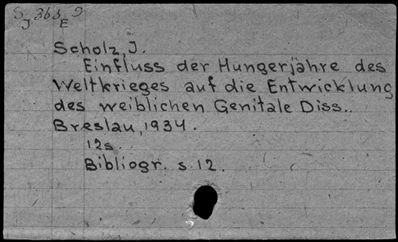 Scholz, J.
Einfluss der Hungerjahre des
Weltkrieges auf die Entwicklung
des weiblichen Genitale Diss..
Breslau, 1934.
12s.
Bibliogr. s. 12.